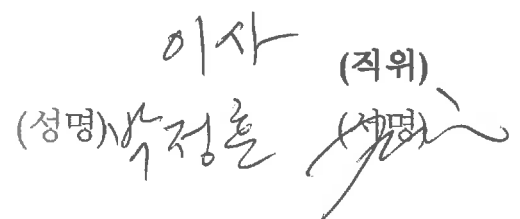 이사
(직위)
(성명) 박정흔 (성명)